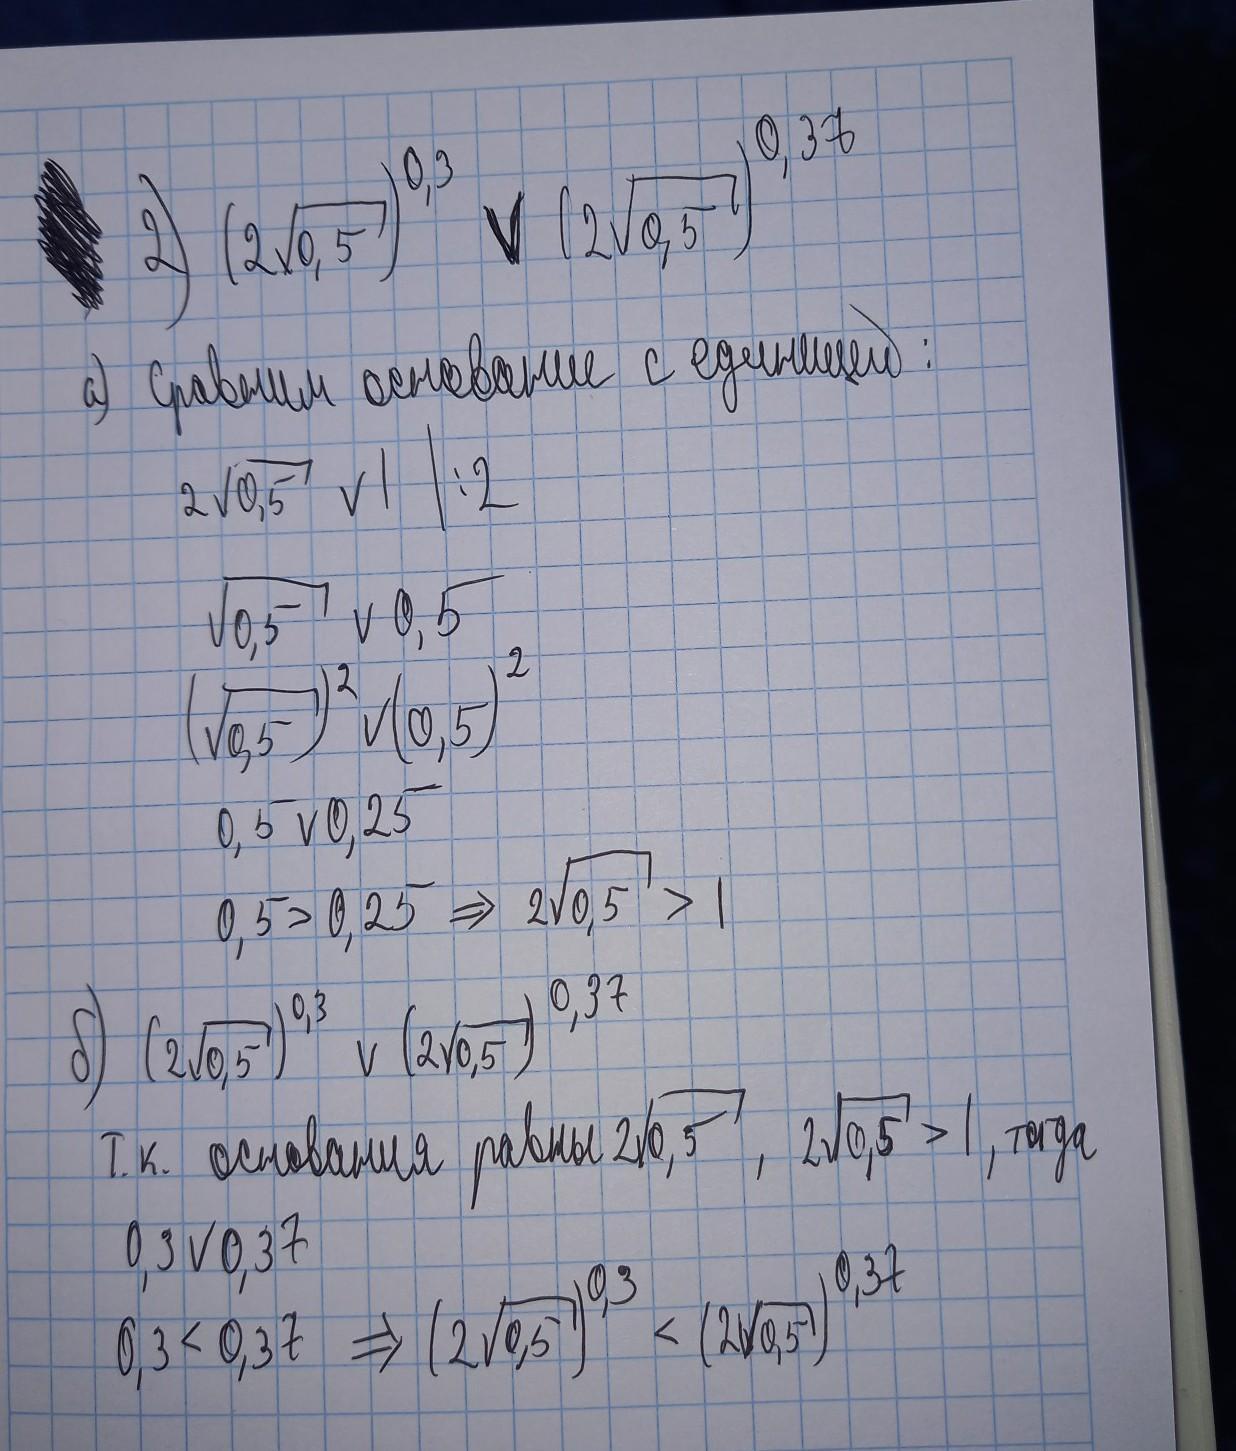 2) (2√0,5)^0,3 V (2√0,5)^0,37
а) Сравним основание с единицей:
2√0,5 V 1 | :2
√0,5 V 0,5
(√0,5)^2 V (0,5)^2
0,5 V 0,25
0,5 > 0,25 ⇒ 2√0,5 > 1
б) (2√0,5)^0,3 V (2√0,5)^0,37
Т.к. основания равны 2√0,5, 2√0,5 > 1, тогда
0,3 V 0,37
0,3 < 0,37 ⇒ (2√0,5)^0,3 < (2√0,5)^0,37